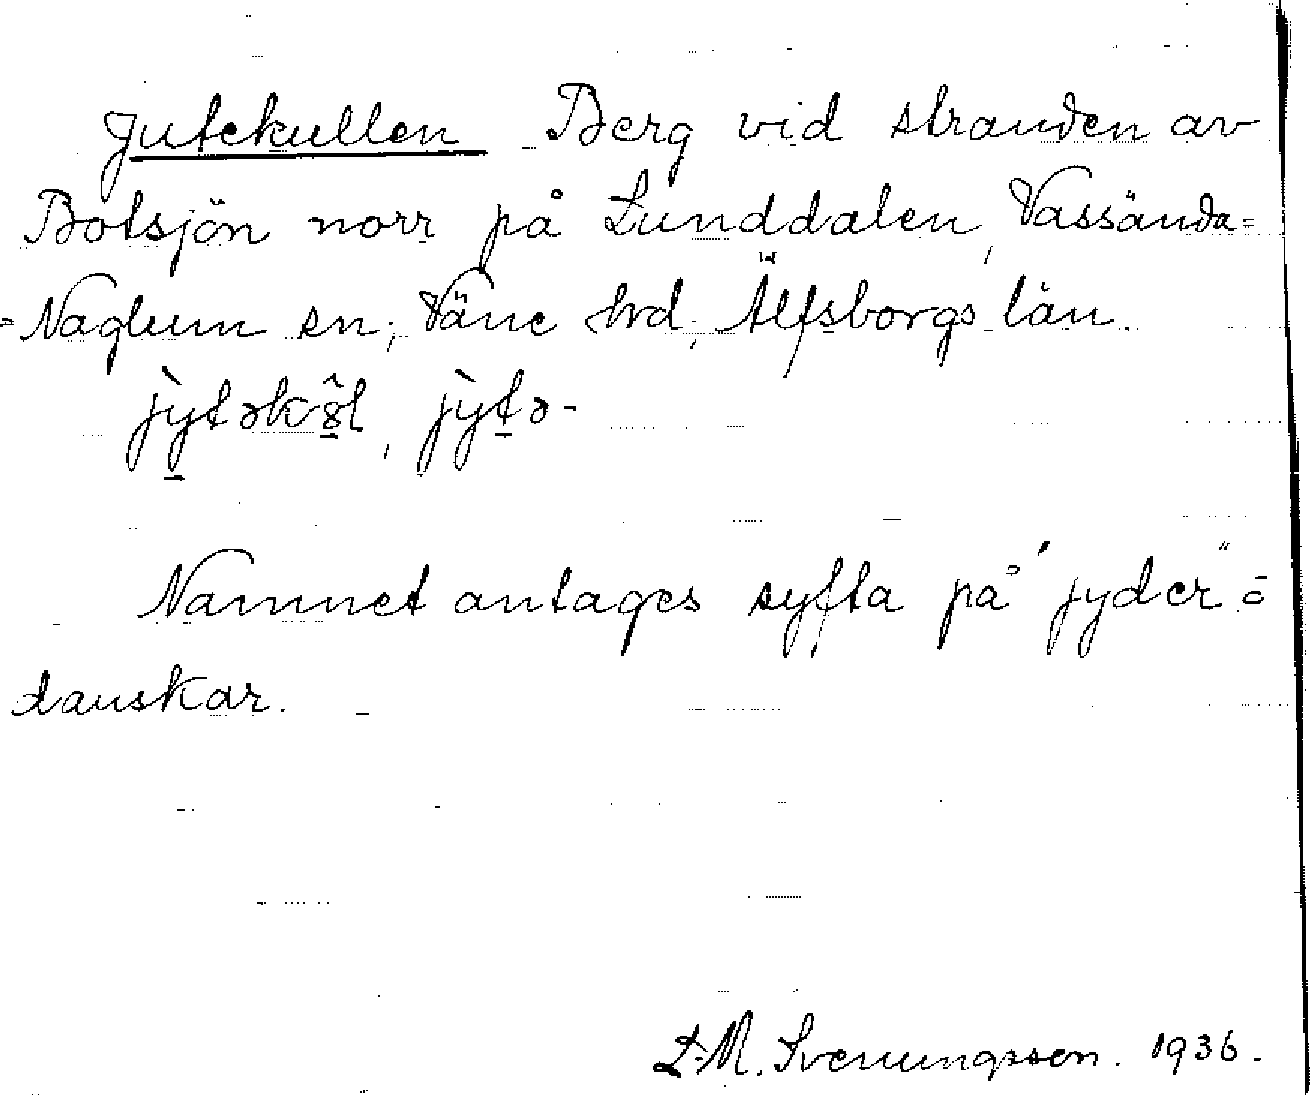 Jutekullen Berg vid stranden av
Botsjön norr på Lunddalen, Vassända-
-Naglum sn, Väne hd, Älfsborgs län.
jỳtəkȣ̂l, jỳtə-
Namnet antages syfta på "jyder" =
danskar.
L.M. Svenungsson. 1936.